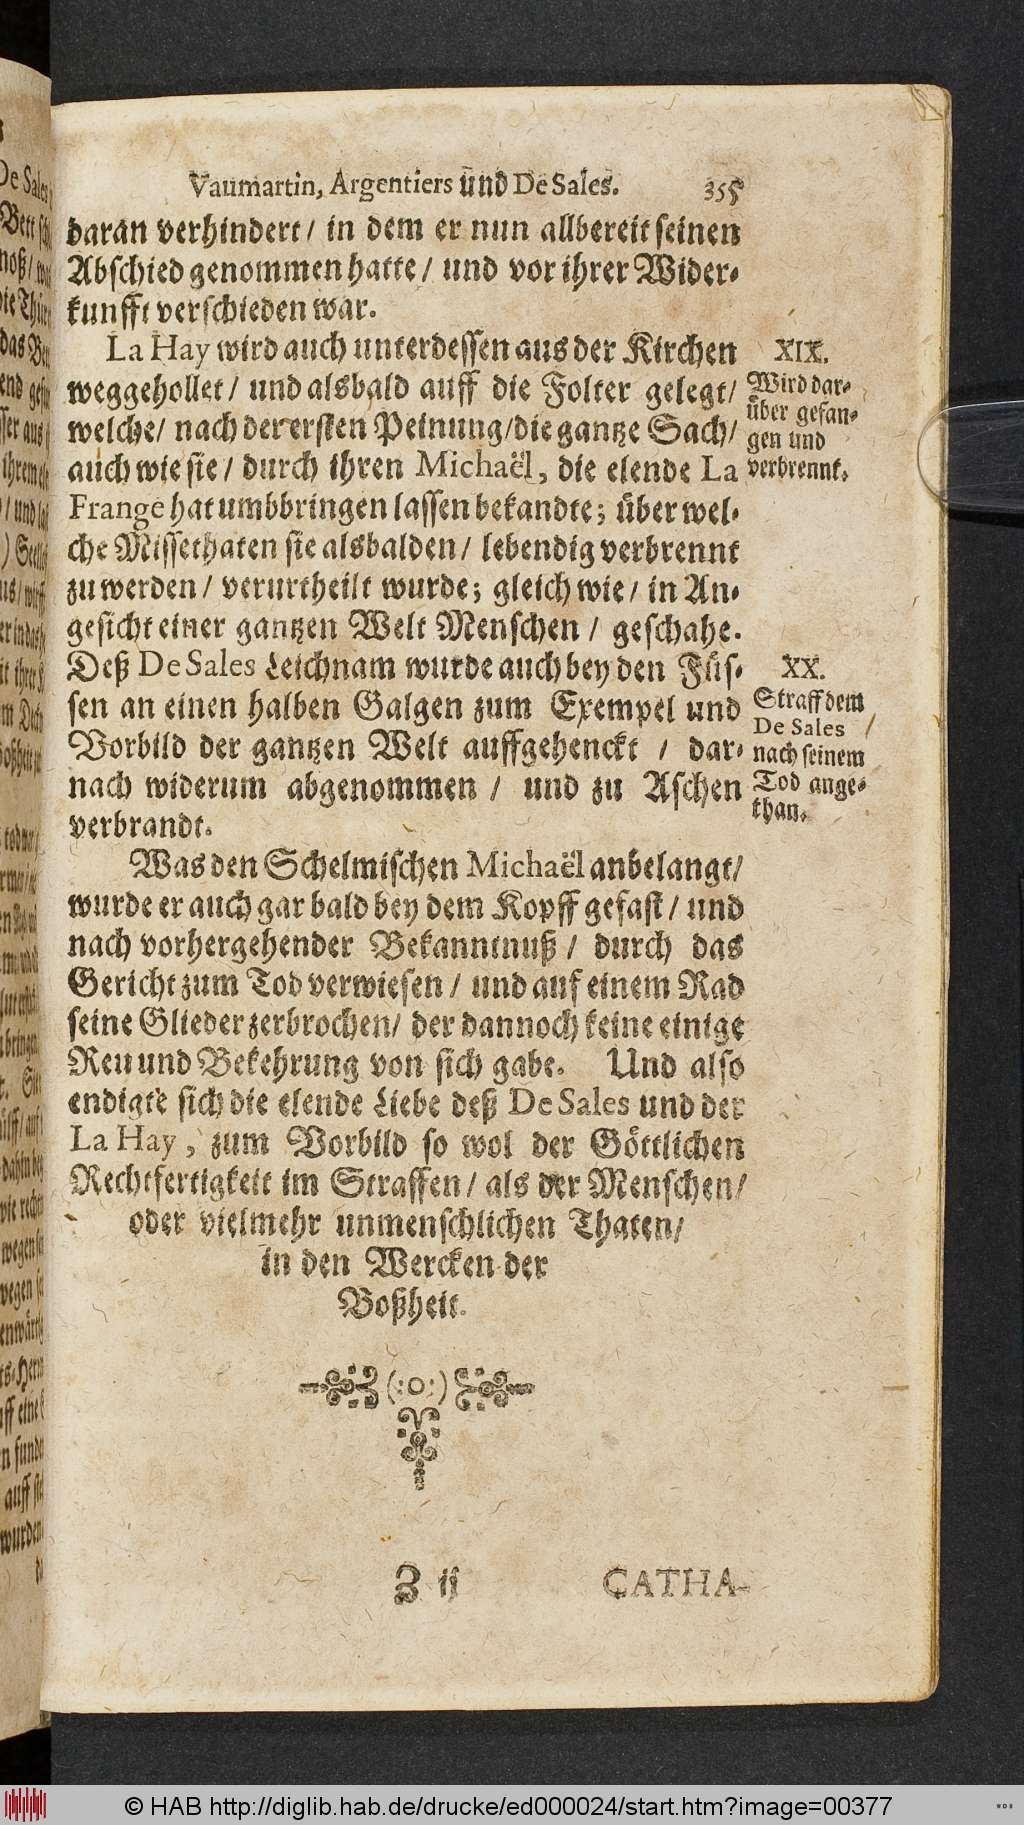 Vaumartin, Argentiers und De Sales. 355
daran verhindert/ in dem er nun allbereit seinen
Abschied genommen hatte/ und vor ihrer Wider-
kunfft verschieden war.
La Hay wird auch unterdessen aus der Kirchen
weggehollet/ und alsbald auff die Folter gelegt/
welche/ nach der ersten Peinung/ die gantze Sach/
auch wie sie/ durch ihren Michaël, die elende La
Frange hat umbbringen lassen bekandte; über wel-
che Missethaten sie alsbalden/ lebendig verbrennt
zu werden/ verurtheilt wurde; gleich wie/ in An-
gesicht einer gantzen Welt Menschen/ geschahe.
XIX.
Wird dar-
über gefan-
gen und
verbrennt.
Deß De Sales Leichnam wurde auch bey den Füs-
sen an einen halben Galgen zum Exempel und
Vorbild der gantzen Welt auffgehenckt/ dar-
nach widerum abgenommen/ und zu Aschen
verbrandt.
XX.
Straff dem
De Sales
nach seinem
Tod ange-
than.
Was den Schelmischen Michaël anbelangt/
wurde er auch gar bald bey dem Kopff gefast/ und
nach vorhergehender Bekanntnuß/ durch das
Gericht zum Tod verwiesen/ und auf einem Rad
seine Glieder zerbrochen/ der dannoch keine einige
Reu und Bekehrung von sich gabe. Und also
endigte sich die elende Liebe deß De Sales und der
La Hay, zum Vorbild so wol der Göttlichen
Rechtfertigkeit im Straffen/ als der Menschen/
oder vielmehr unmenschlichen Thaten/
in den Wercken der
Boßheit.
(:o:)
Z ij CATHA-
© HAB http://diglib.hab.de/drucke/ed000024/start.htm?image=00377